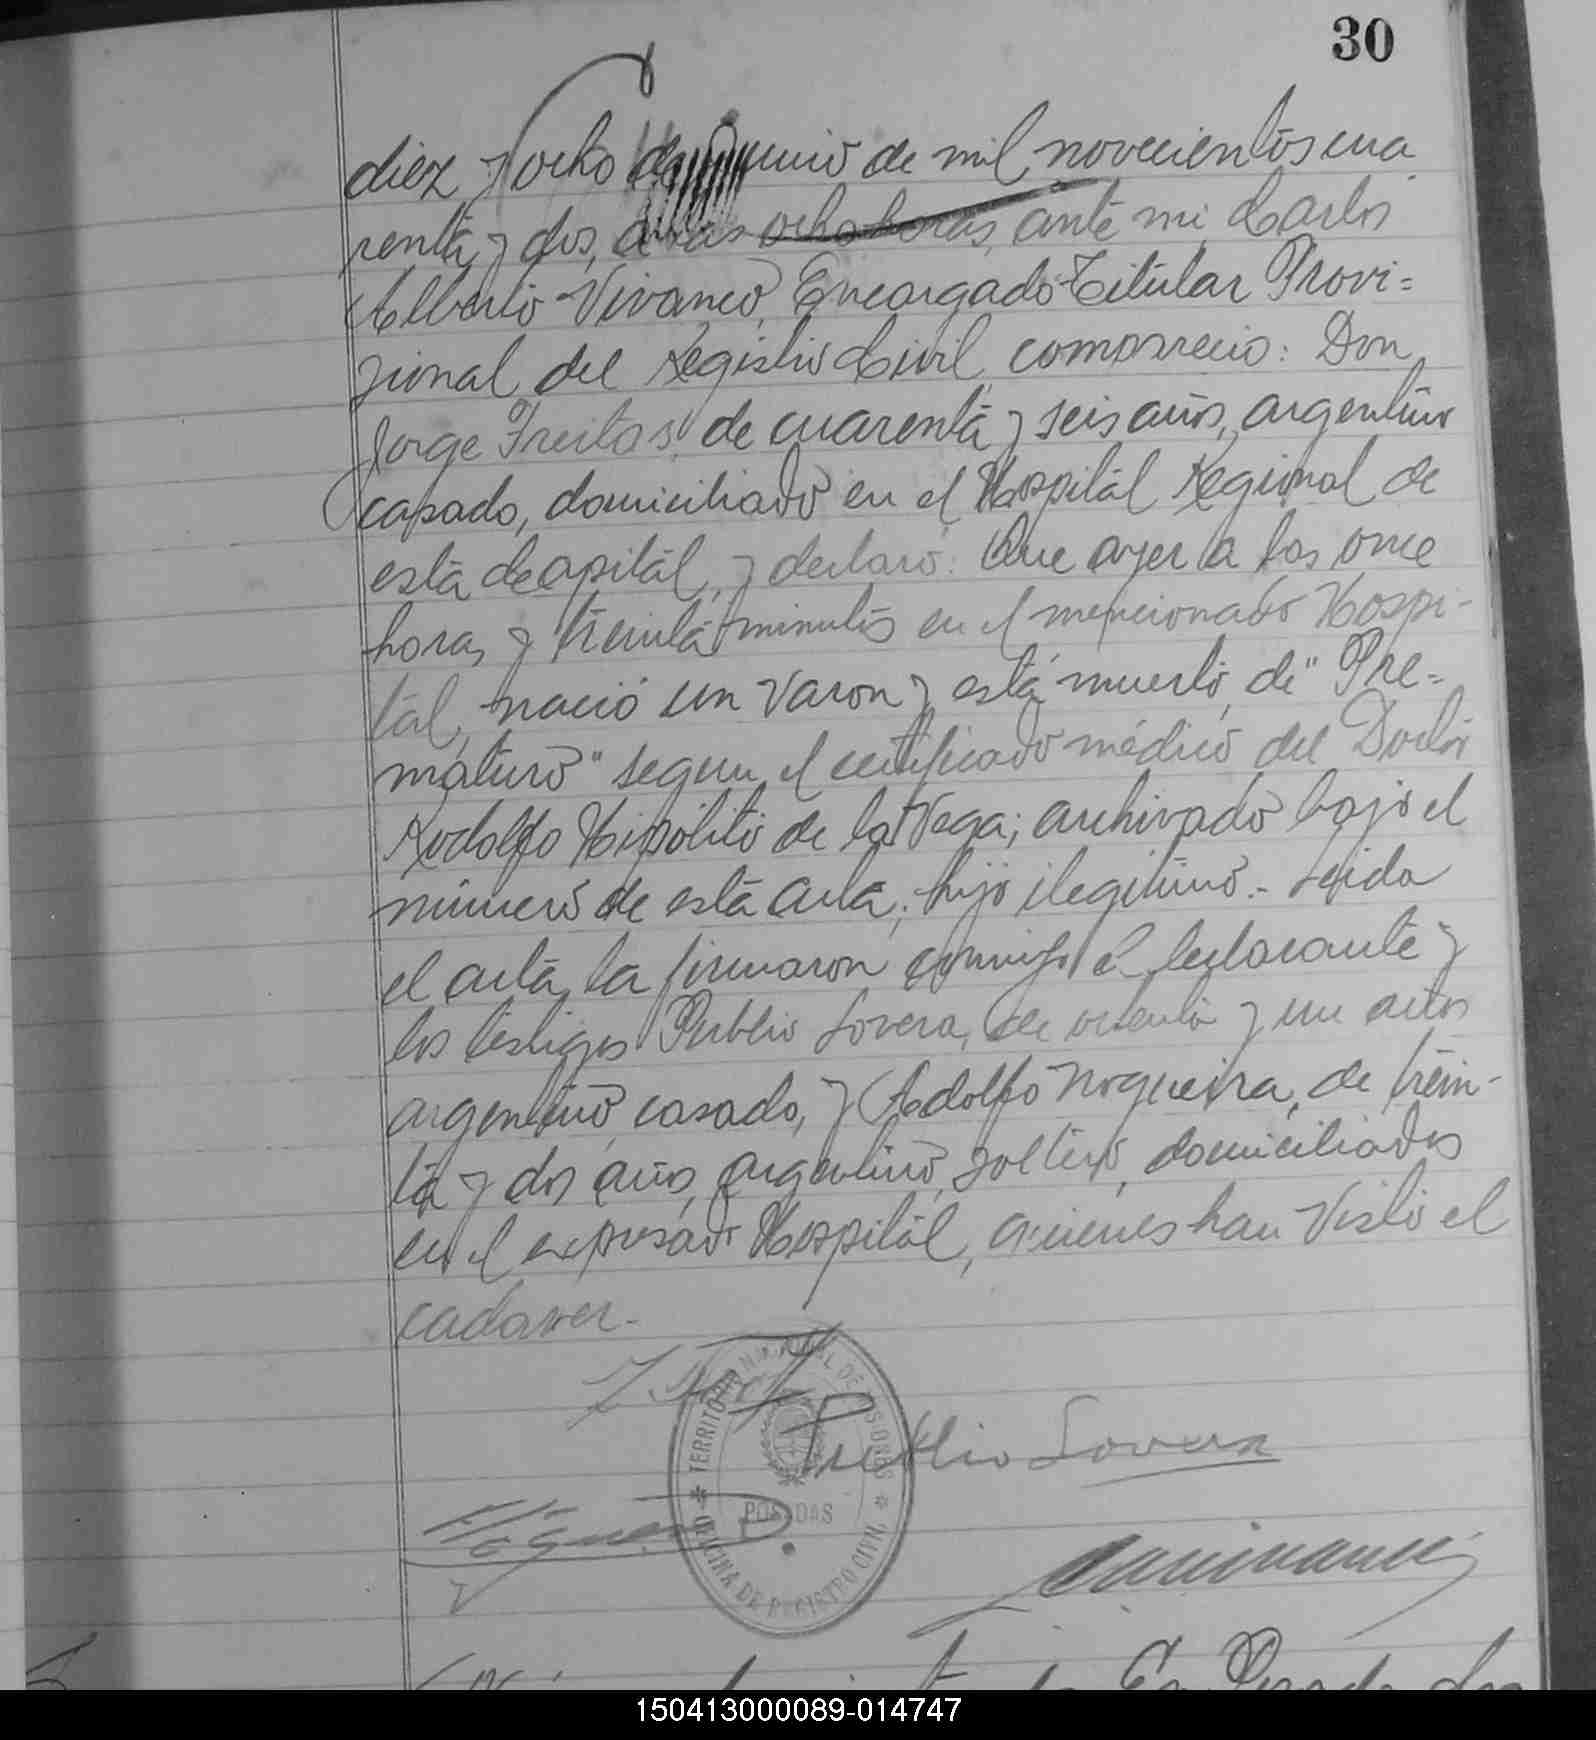 30
diez y ocho de Junio de mil novecientos cua
renta y dos, a las ocho horas, ante mi Carlos
Alberto Vivanco, Encargado Titular Provi=
sional del Registro Civil, comparecio: Don
Jorge Freitas, de cuarenta y seis años, argentino
casado, domiciliado en el Hospital Regional de
esta Capital, y declaró: Que ayer a las once
horas y treinta minutos en el mencionado Hospi-
tal, nació un varon y está muerto, de "Pre=
maturo" segun el certificado médico del Doctor
Rodolfo Hipólito de la Vega; archivado bajo el
número de esta acta; hijo ilegitimo.- Leida
el acta, la firmaron conmigo el declarante y
los testigos Publio Lovera, de ochenta y un años
argentino, casado, y Adolfo Nogueira, de trein-
ta y dos años, argentino, soltero, domiciliados
en el expresado Hospital, quienes han visto el
cadaver.-
Publio Lovera
TERRITORIO NACIONAL DE MISIONES
POSADAS
OFICINA DE REGISTRO CIVIL
150413000089-014747